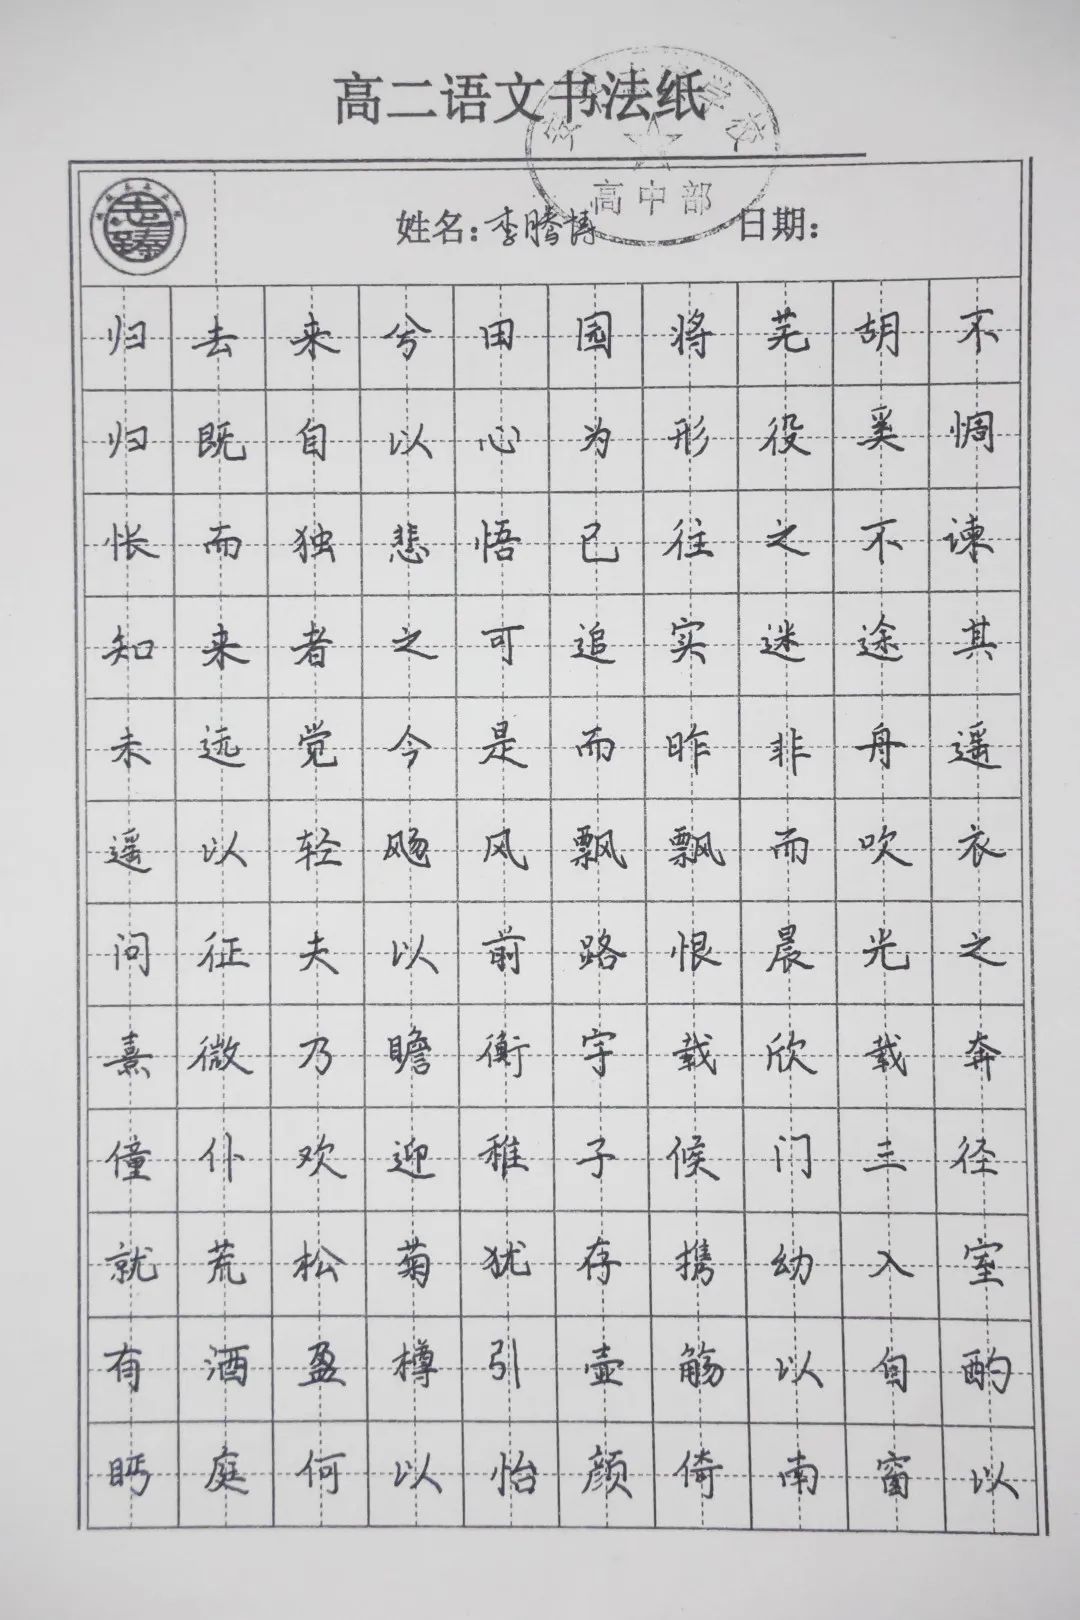 高二语文书法纸
学校
高中部
志臻
姓名：李腾博 日期：
归去来兮田园将芜胡不
归既自以心为形役奚惆
怅而独悲悟已往之不谏
知来者之可追实迷途其
未远觉今是而昨非舟遥
遥以轻飏风飘飘而吹衣
问征夫以前路恨晨光之
熹微乃瞻衡宇载欣载奔
僮仆欢迎稚子候门三径
就荒松菊犹存携幼入室
有酒盈樽引壶觞以自酌
眄庭何以怡颜倚南窗以